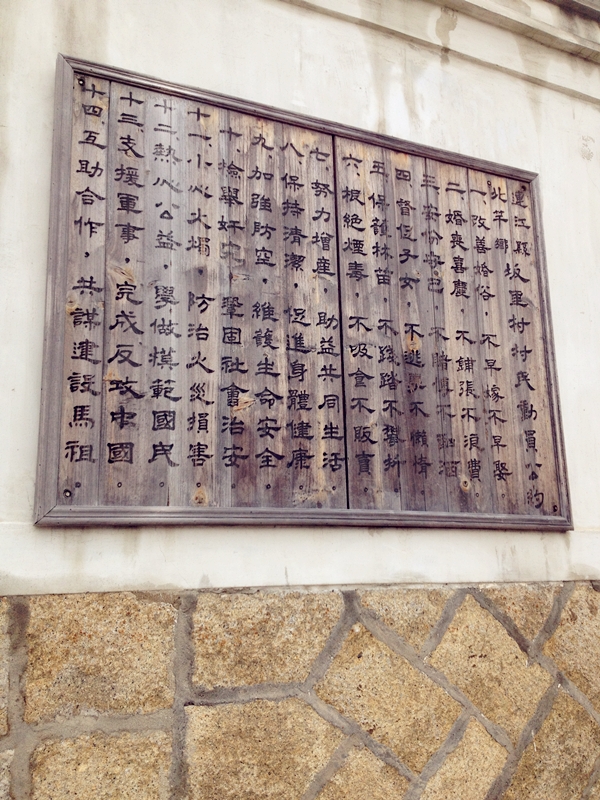 連江縣坂里村村民動員公約
北竿鄉
一、改善婚俗，不早嫁不早娶
二、婚喪喜慶，不鋪張不浪費
三、安份守己 不賭博不酗酒
四、督促子女，不逃學不懶惰
五、保護林苗，不踐踏不攀折
六、根絕煙毒，不吸食不販賣
七、努力增產，助益共同生活
八、保持清潔，促進身體健康
九、加強防空，維護生命安全
十、檢舉奸宄，鞏固社會治安
十一、小心火燭，防治火災損害
十二、熱心公益，學做模範國民
十三、支援軍事，完成反攻中國
十四互助合作，共謀建設馬祖